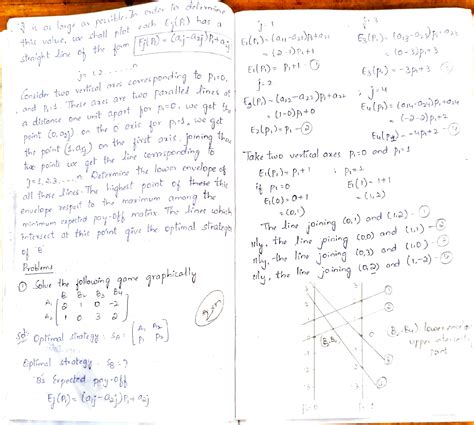 is as large as possible. In order to determine
this value, we shall plot each Ej(P1) has a
straight line of the form Ej(P1) = (a1j-a2j)P1+a2j
j = 1,2......n
Consider two vertical axes corresponding to P1=0,
and P1=1. These axes are two parallel lines at
a distance one unit apart for P1=0. we get the
point (0,a2j) on the 0 axis for P1=1, we get
the point (1,a1j) on the first axis. joining these
two points we get the line corresponding to
j=1,2,3.....n Determine the lower envelope of
all these lines. The highest point of this
envelope respect to the maximum among the
minimum expected pay-off matrix. The lines which
intersect at this point give the optimal strategy
of 'B'.
Problems
① Solve the following game graphically
B1 B2 B3 B4
A1 2 1 0 -2
A2 1 0 3 2
Sol: Optimal strategy : SA = [A1 A2
P1 P2]
Optimal strategy SB = ?
B's Expected pay-off
Ej(P1) = (a1j-a2j)P1+a2j
j=1
E1(P1) = (a11-a21)P1+a21
= (2-1)P1+1
E1(P1) = P1+1 - ①
j=2
E2(P1) = (a12-a22)P1+a22
= (1-0)P1+0
E2(P1) = P1 - ②
j=3
E3(P1) = (a13-a23)P1+a23
= (0-3)P1+3
E3(P1) = -3P1+3 - ③
j=4
E4(P1) = (a14-a24)P1+a24
= (-2-2)P1+2
E4(P1) = -4P1+2 - ④
Take two vertical axes P1=0 and P1=1
E1(P1) = P1+1 ; P1=1
if P1=0 E1(1) = 1+1
E1(0) = 0+1 = (1,2)
= (0,1)
The line joining (0,1) and (1,2) - ①
lly, the line joining (0,0) and (1,1) - ②
lly, the line joining (0,3) and (1,0) - ③
lly, the line joining (0,2) and (1,-2) - ④